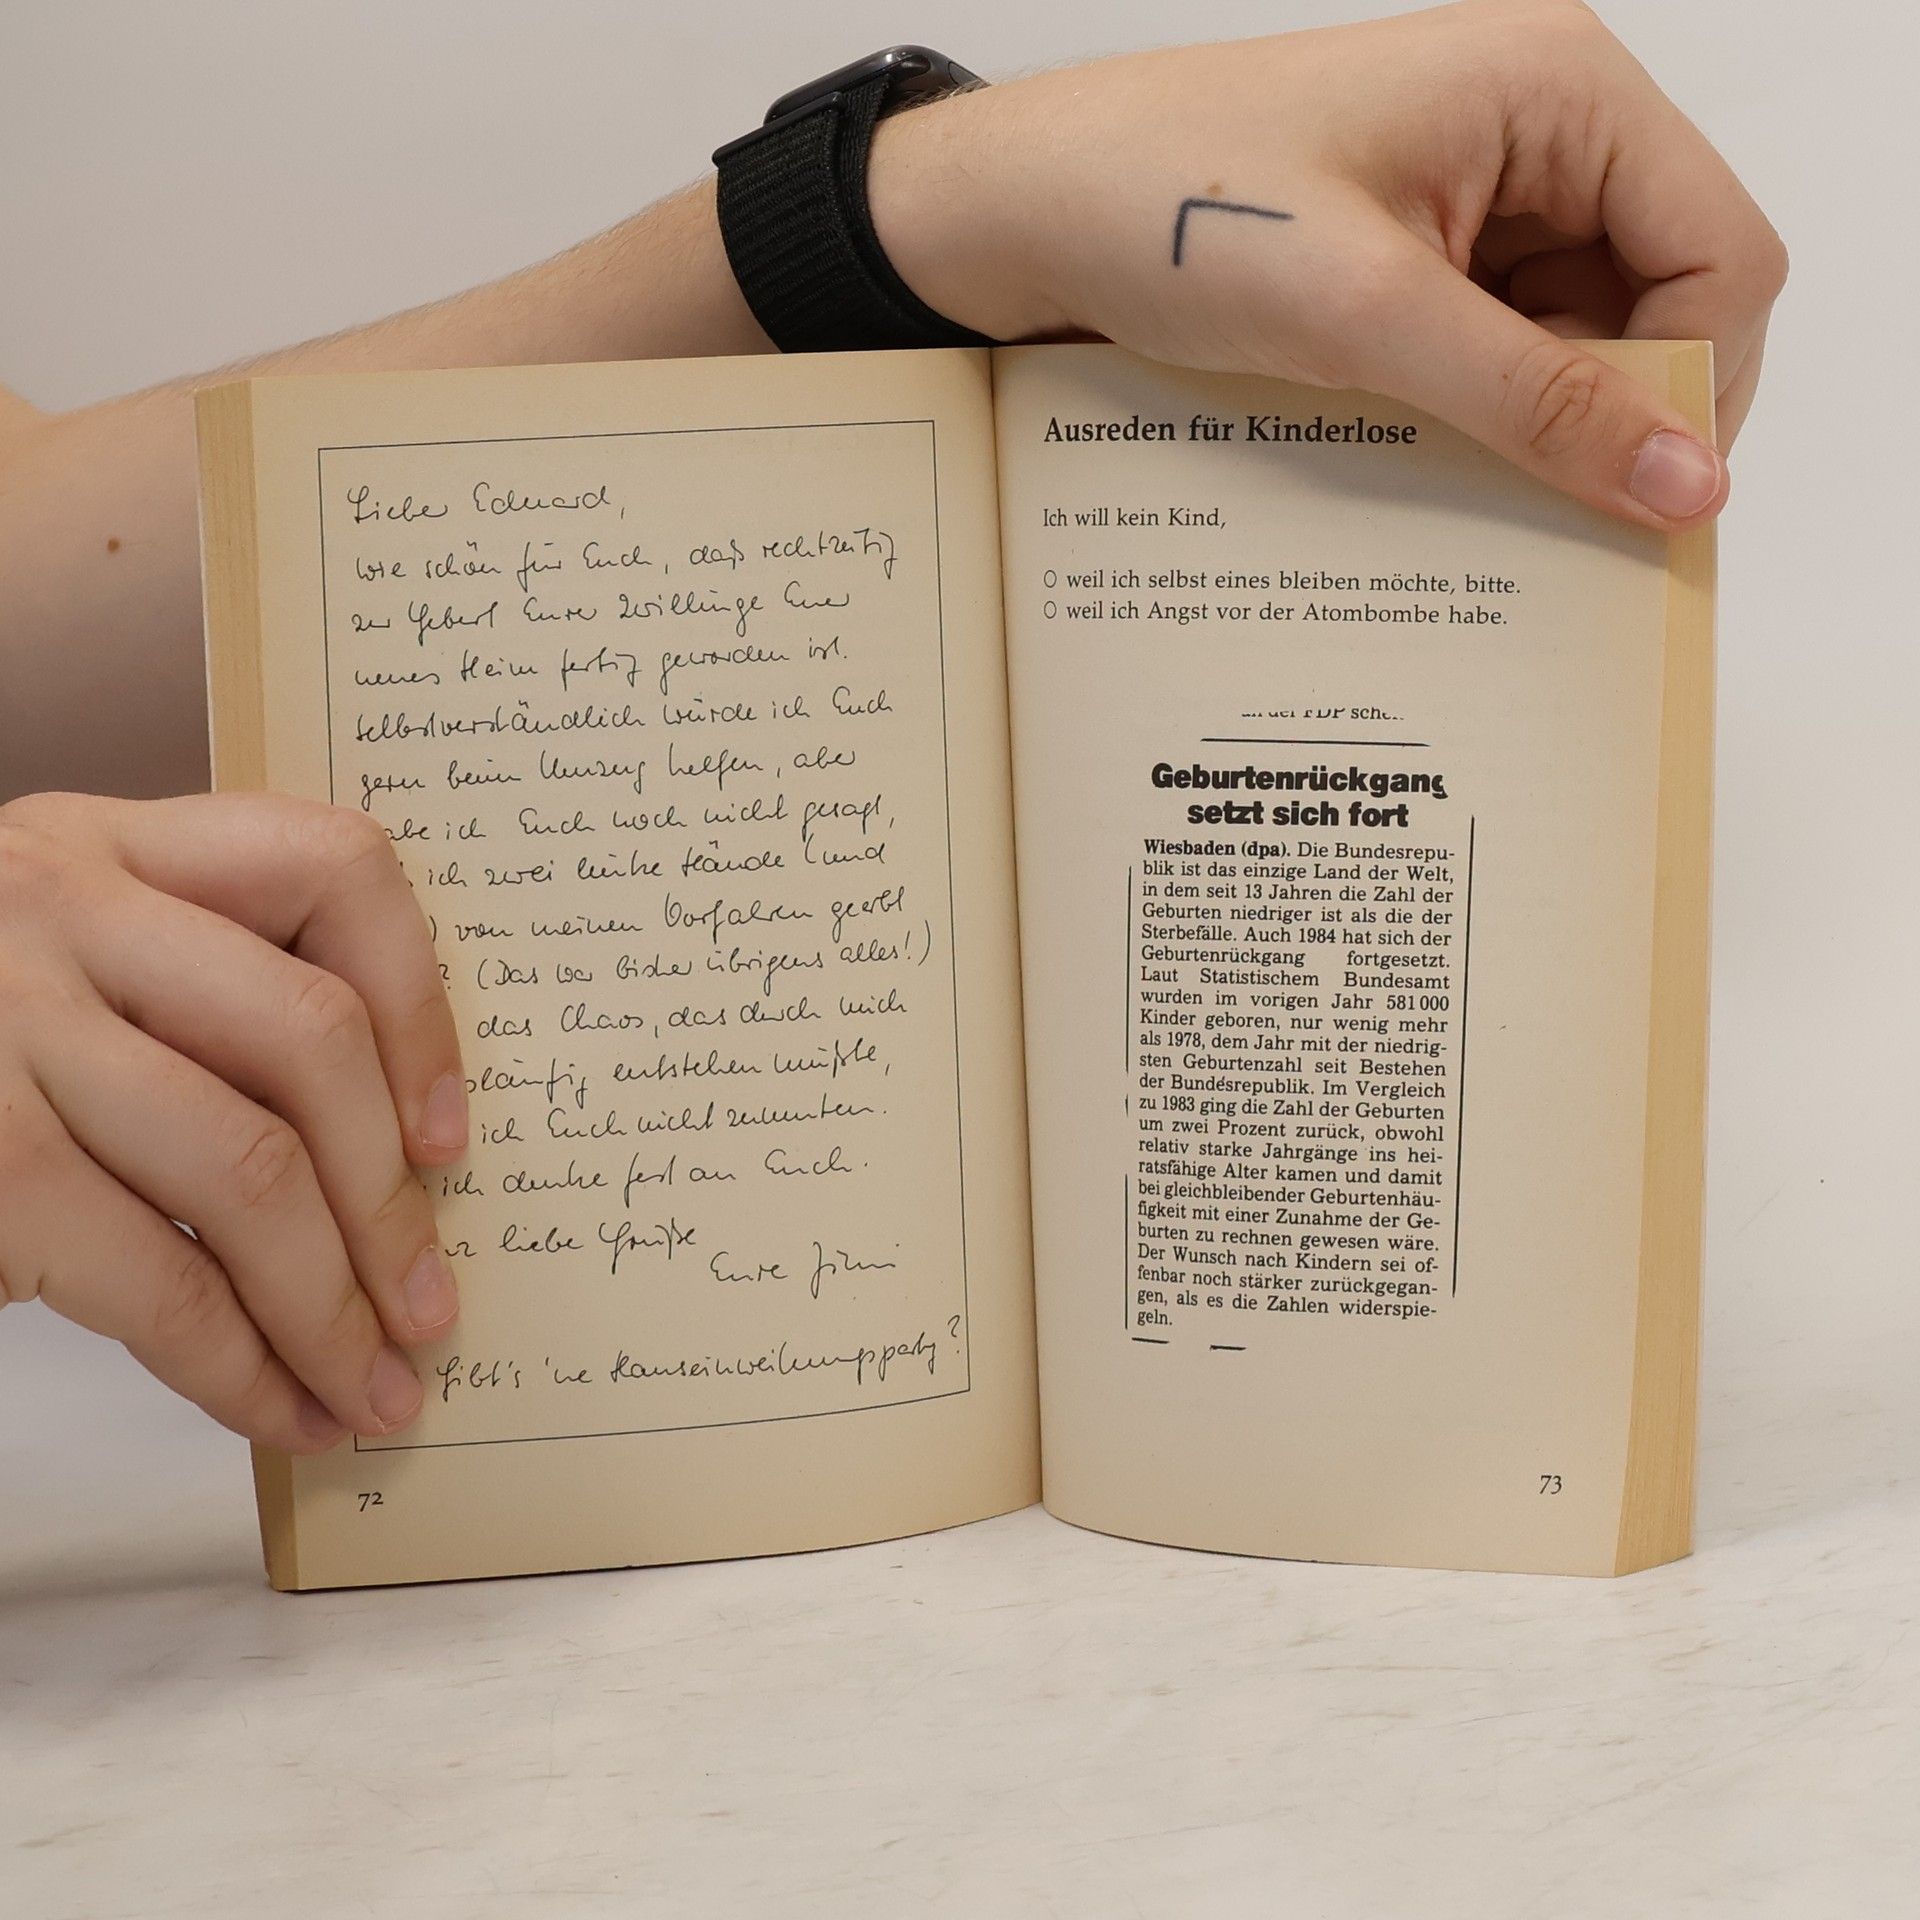 Liebe Eduard,
wie schön für Euch, daß rechtzeitig
zur Geburt Eurer Zwillinge Euer
neues Heim fertig geworden ist.
Selbstverständlich würde ich Euch
gern beim Umzug helfen, aber
abe ich Euch noch nicht gesagt,
ich zwei linke Hände (und
) von meinen Vorfahren geerbt
? (Das war bisher übrigens alles!)
das Chaos, das durch mich
släufig entstehen müßte,
ich Euch nicht zumuten.
ich denke fest an Euch.
liebe Grüße
Eure
Gibt's 'ne Hauseinweihungsparty?
72
Ausreden für Kinderlose
Ich will kein Kind,
O weil ich selbst eines bleiben möchte, bitte.
O weil ich Angst vor der Atombombe habe.
der FDP
Geburtenrückgang
setzt sich fort
Wiesbaden (dpa). Die Bundesrepu-
blik ist das einzige Land der Welt,
in dem seit 13 Jahren die Zahl der
Geburten niedriger ist als die der
Sterbefälle. Auch 1984 hat sich der
Geburtenrückgang fortgesetzt.
Laut Statistischem Bundesamt
wurden im vorigen Jahr 581 000
Kinder geboren, nur wenig mehr
als 1978, dem Jahr mit der niedrig-
sten Geburtenzahl seit Bestehen
der Bundesrepublik. Im Vergleich
zu 1983 ging die Zahl der Geburten
um zwei Prozent zurück, obwohl
relativ starke Jahrgänge ins hei-
ratsfähige Alter kamen und damit
bei gleichbleibender Geburtenhäu-
figkeit mit einer Zunahme der Ge-
burten zu rechnen gewesen wäre.
Der Wunsch nach Kindern sei of-
fenbar noch stärker zurückgegan-
gen, als es die Zahlen widerspie-
geln.
73